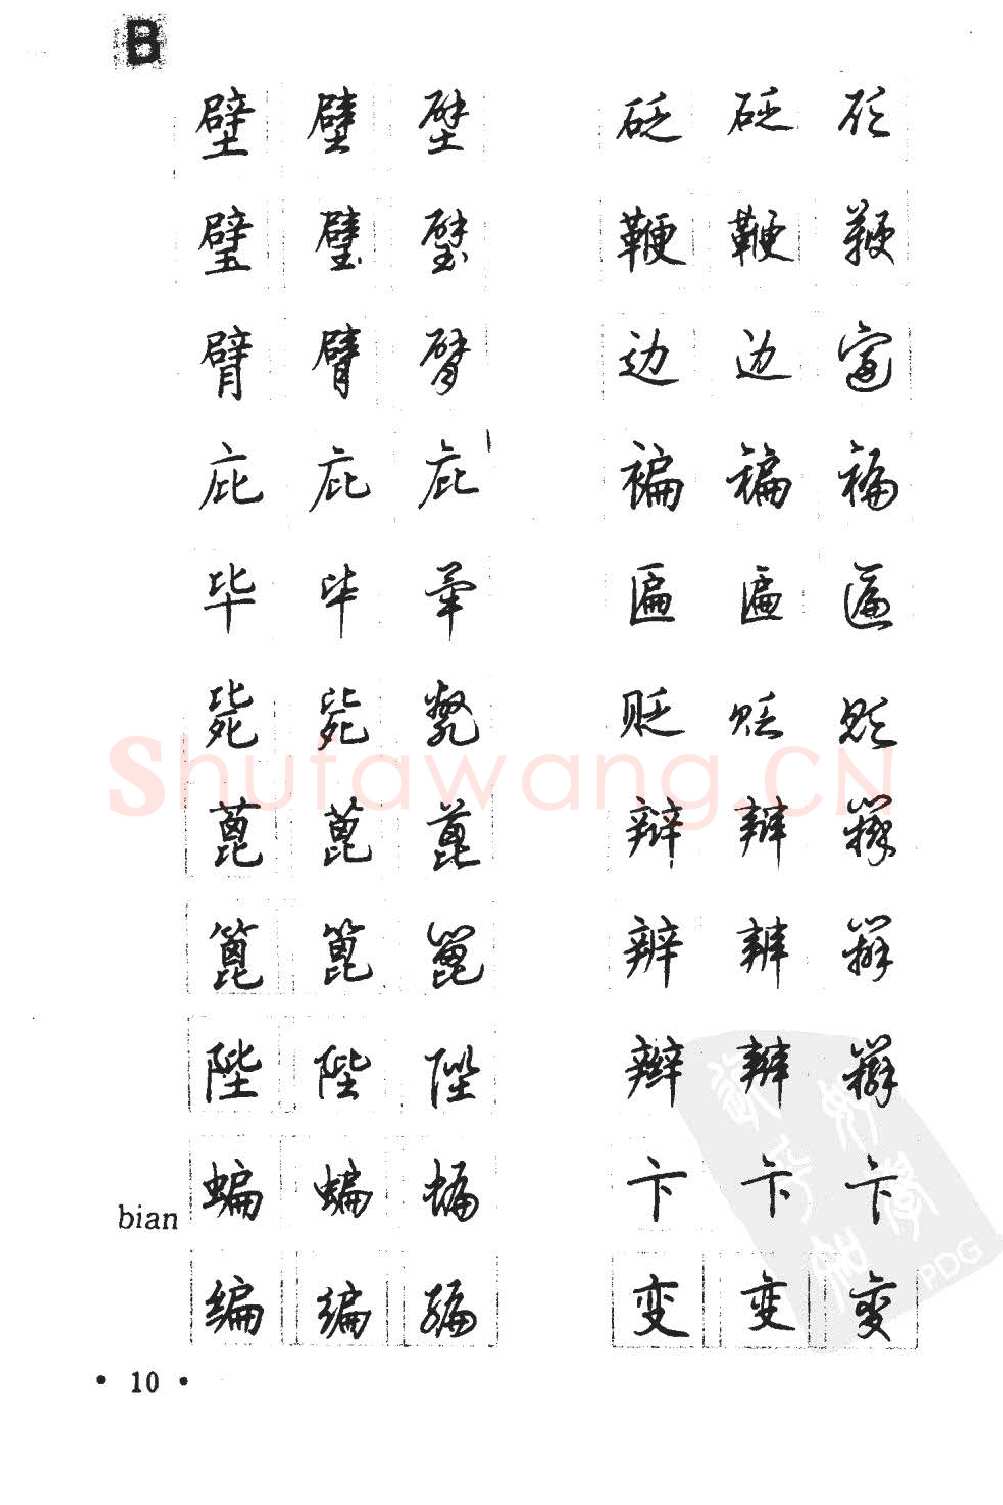 B
壁 壁 壁
璧 璧 璧
臂 臂 臂
庇 庇 庇
毕 毕 畢
毙 毙 斃
蓖 蓖 蓖
篦 篦 篦
陛 陛 陛
bian 蝙 蝙 蝙
编 编 编
砭 砭 砭
鞭 鞭 鞭
边 边 邊
褊 褊 褊
匾 匾 匾
贬 贬 贬
辩 辩 辩
辨 辨 辨
辫 辫 辫
卞 卞 卞
变 变 变
• 10 •
Shufawang.CN
PDG